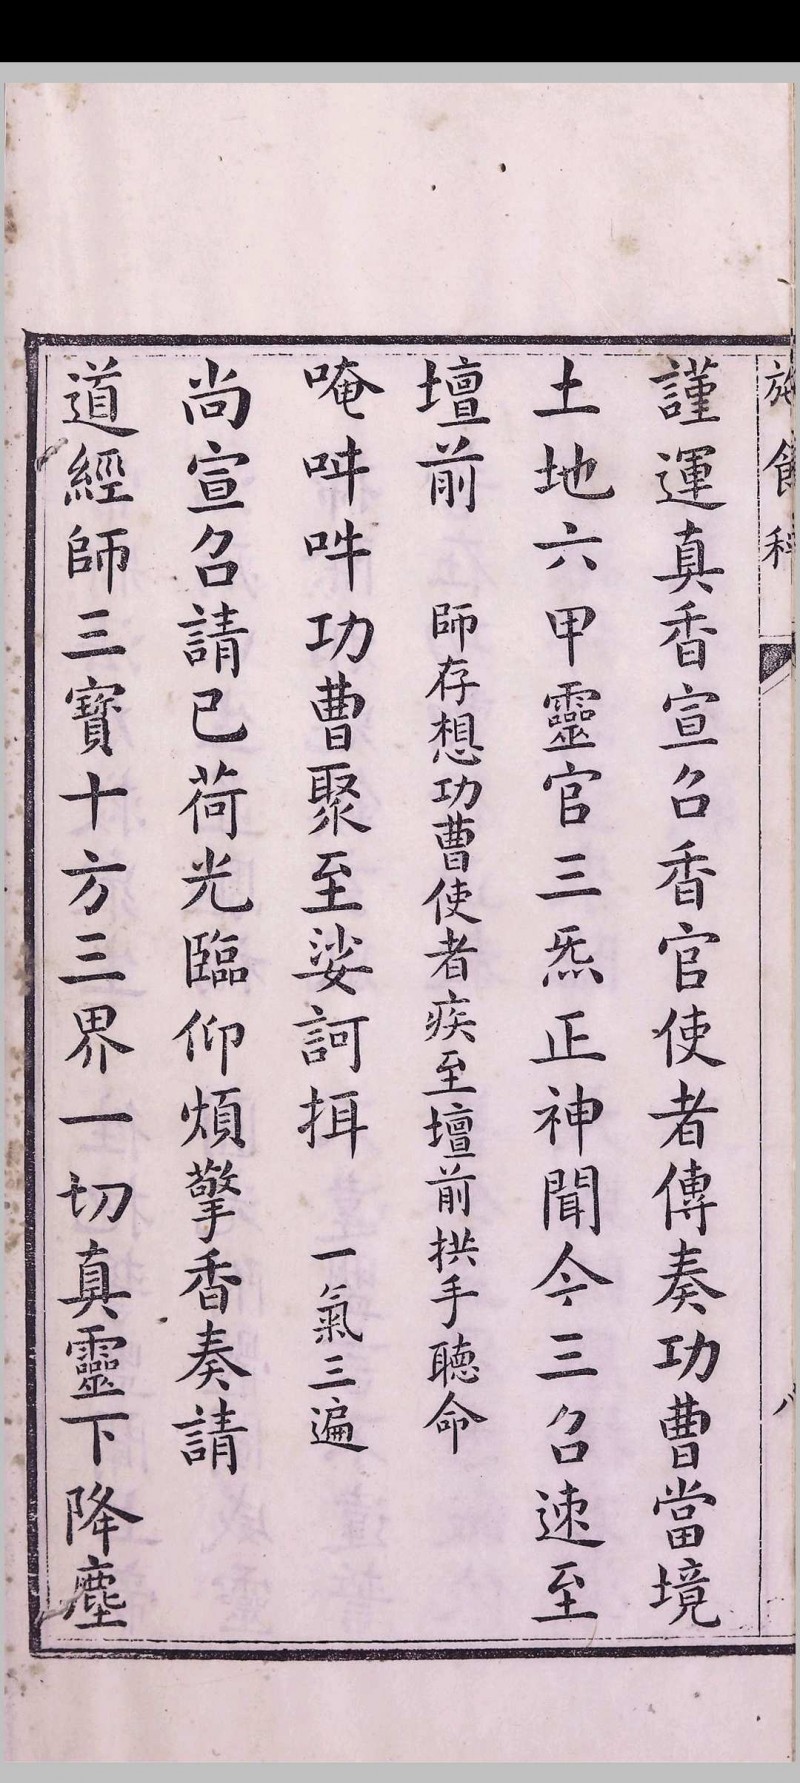 施食科
八
謹運真香宣召香官使者傳奏功曹當境
土地六甲靈官三炁正神聞今三召速至
壇前 師存想功曹使者疾至壇前拱手聽命
唵吽吽功曹聚至娑訶揖 一氣三遍
尚宣召請已荷光臨仰煩擎香奏請
道經師三寶十方三界一切真靈下降塵